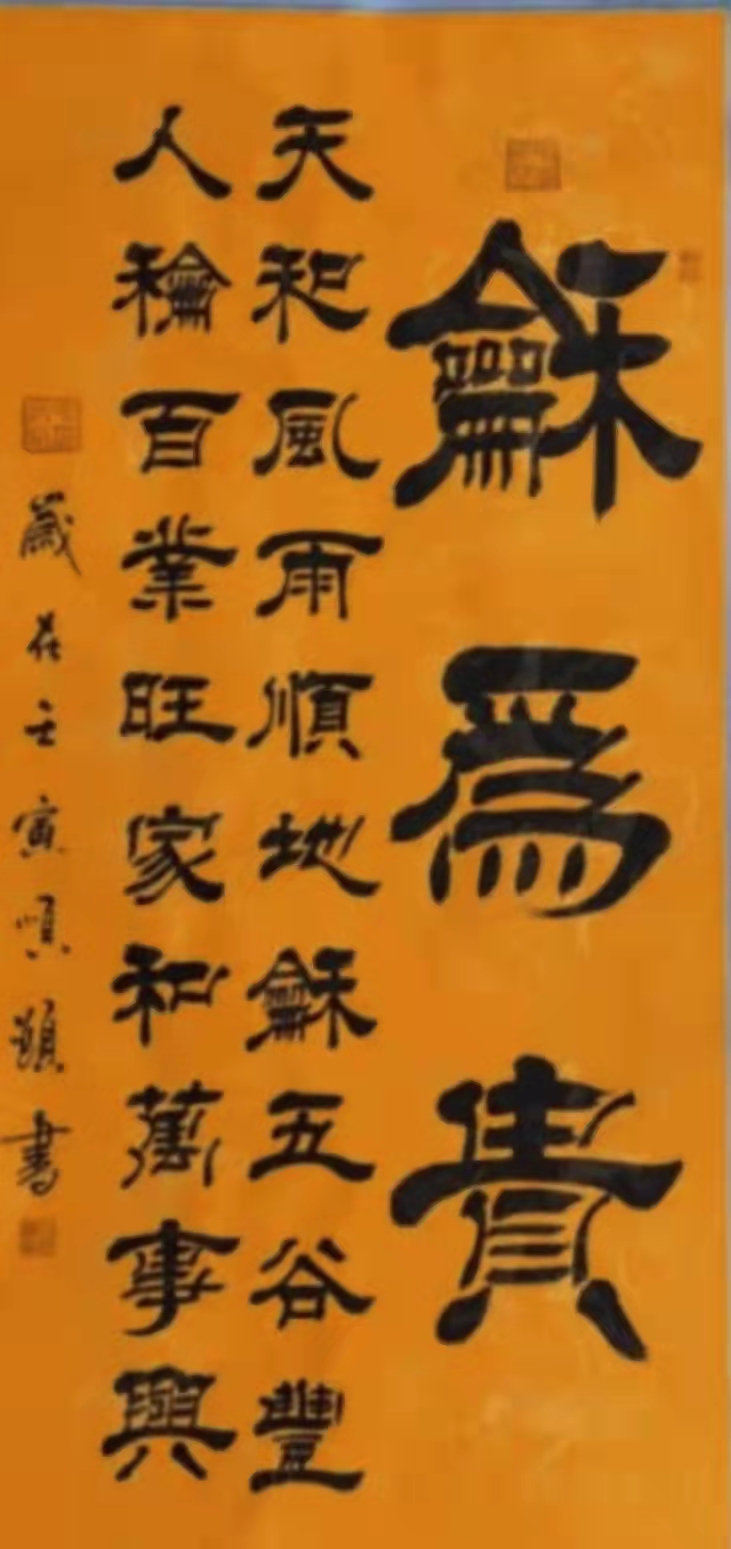 龢為貴
天和風雨順地龢五谷豐
人龢百業旺家和萬事興
歲在壬寅順題書